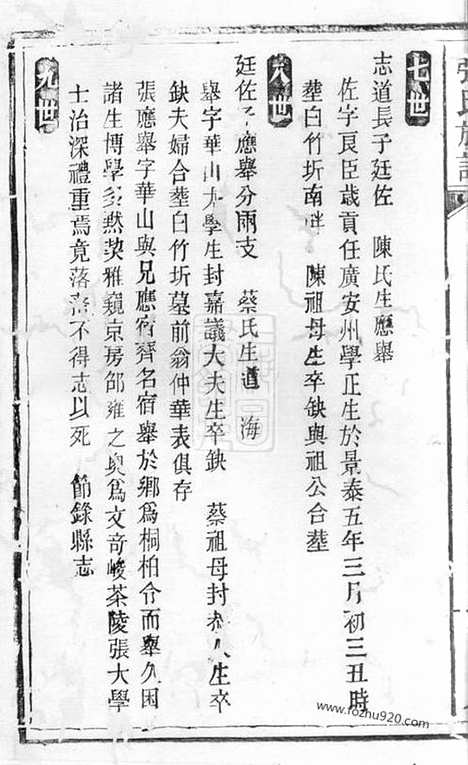 七世
志道長子廷佐　陳氏生應舉
佐字良臣歲貢任廣安州學正生於景泰五年三月初三丑時
塟白竹圻南畔　陳祖母生卒缺與祖公合塟
八世
廷佐子應舉分兩支　蔡氏生道　海
舉字華山太學生封嘉議大夫生卒缺　蔡祖母封淑人生卒
缺夫婦合塟白竹圻墓前翁仲華表俱存
張應舉字華山與兄應宿齊名宿舉於鄉為桐柏令而舉久困
諸生博學多黙契雅窺京房邵雍之奥為文奇峻茶陵張大學
士治深禮重焉竟落落不得志以死　節錄縣志
九世
www.fozhu920.com